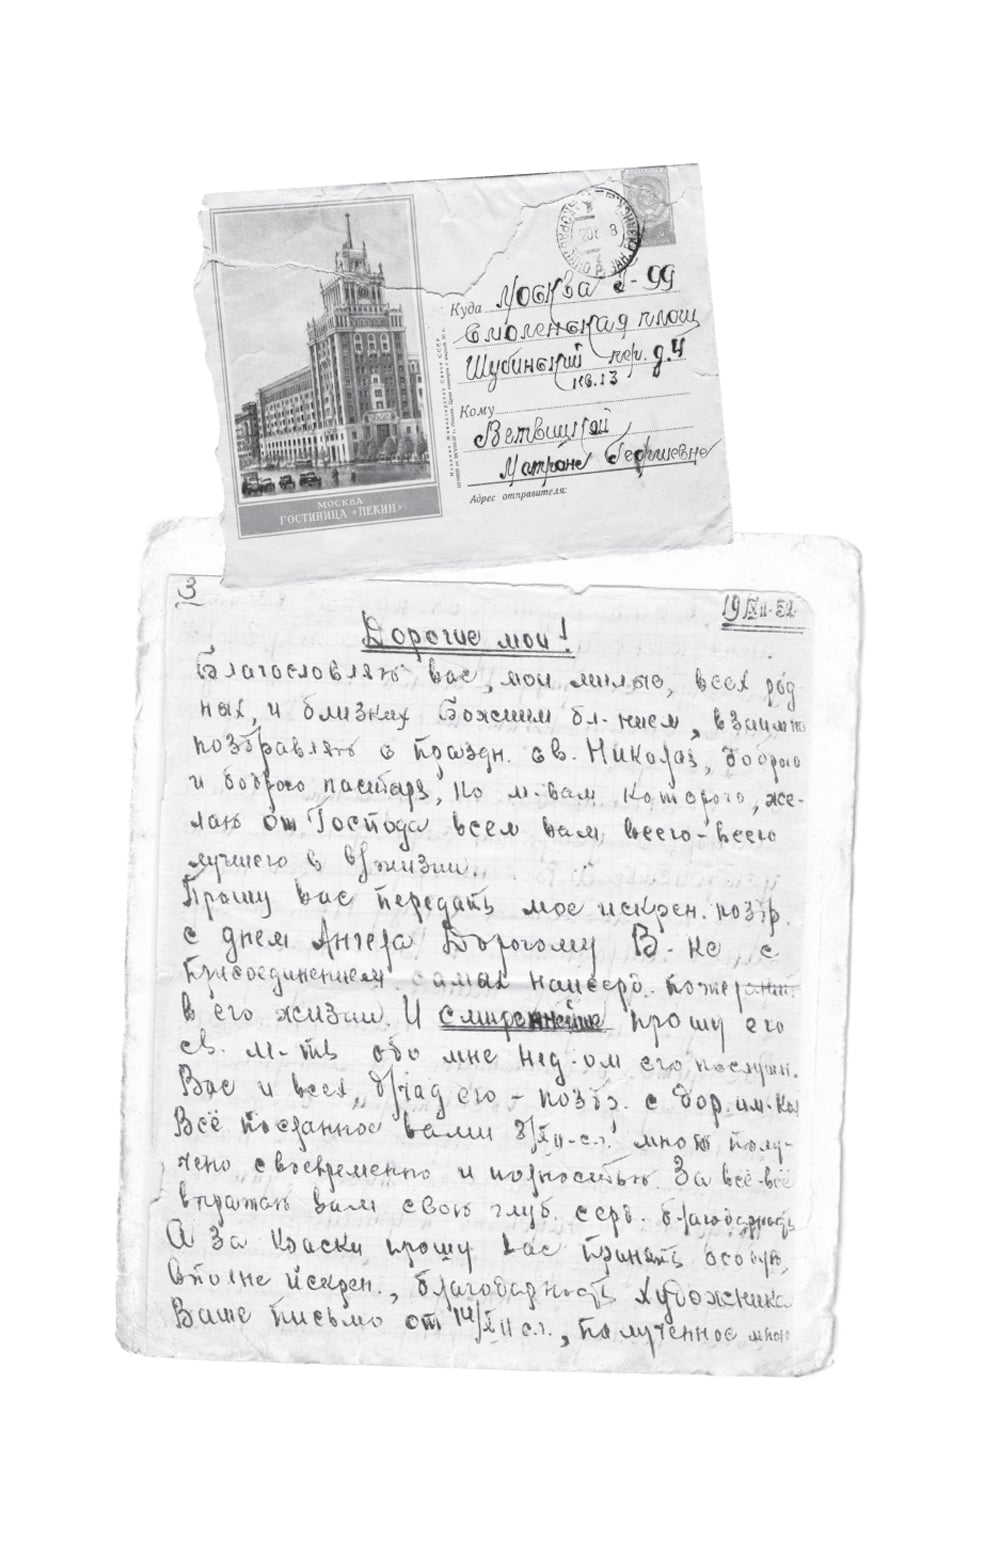 Куда Москва Г-99
Смоленская площ
Шубинский пер. д.4
кв.13
Кому
Ветвицкой
Матроне Георгиевне
Адрес отправителя:
МОСКВА
ГОСТИНИЦА «ПЕКИН»
3
19/XII-52.
Дорогие мои!
Благословляю вас, мои милые, всех род-
ных, и близких Божиим бл-нием, взаимно
поздравляю с праздн. св. Николая, доброго
и бодрого пастыря, по м-вам которого, же-
лаю от Господа всем вам всего-всего
лучшего в в/жизни.
Прошу вас передать мое искрен. поздр.
с днем Ангела Дорогому В-ке с
присоединением самых наисерд. пожеланий
в его жизни. И смиреннейше прошу его
св. м-тв обо мне нед-ом его послушн.
Вас и всех, д/чад его – поздр. с дор. им-ком
Всё посланное вами 8/XII-с.г. мною полу-
чено своевременно и полностью. За всё-всё
выражаю вам свою глуб. серд. благодарность
А за краски прошу вас принять особую,
вполне искрен., благодарность художника
Ваше письмо от 14/XII с.г., полученное мною